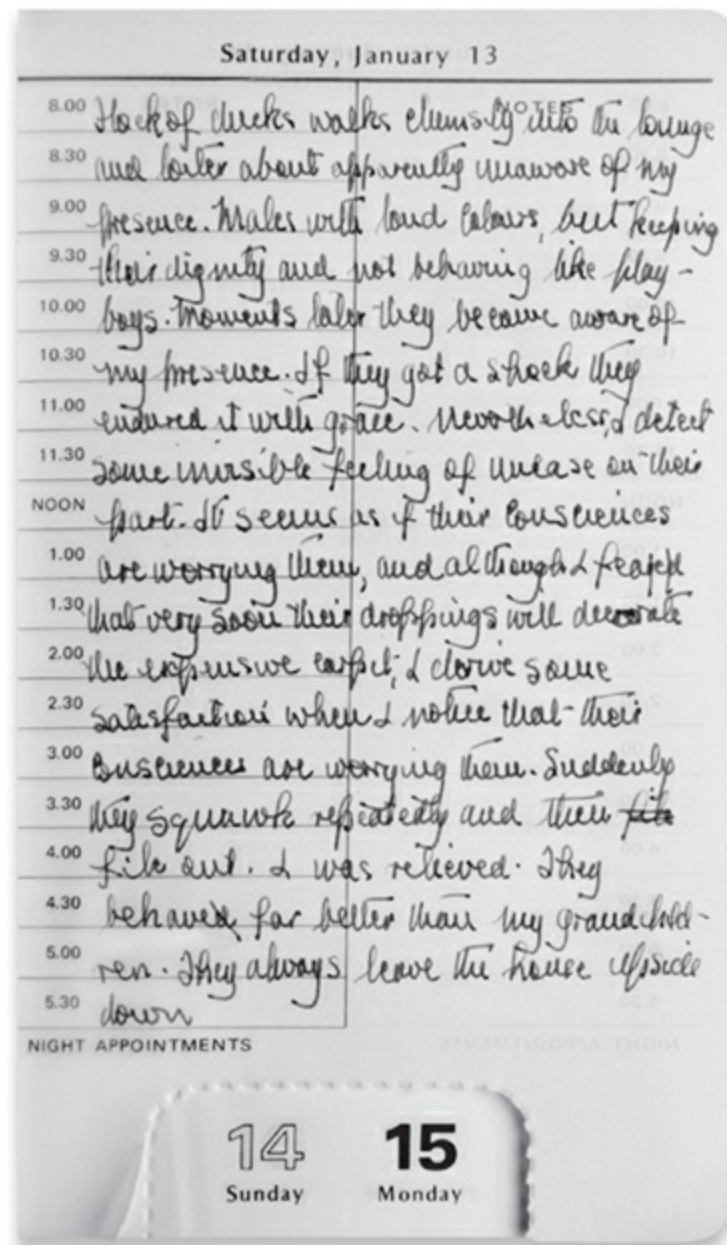 Saturday, January 13
NOTES
8.00 Flock of ducks walks clumsily into the lounge
8.30 and loiter about apparently unaware of my
9.00 presence. Males with loud colours, but keeping
9.30 their dignity and not behaving like play-
10.00 boys. Moments later they become aware of
10.30 my presence. If they got a shock they
11.00 endured it with grace. Nevertheless, I detect
11.30 some invisible feeling of unease on their
NOON part. It seems as if their consciences
1.00 are worrying them, and although I feared
1.30 that very soon their droppings will decorate
2.00 the expensive carpet, I derive some
2.30 satisfaction when I notice that their
3.00 consciences are worrying them. Suddenly
3.30 they squawk repeatedly and then file
4.00 file out. I was relieved. They
4.30 behaved far better than my grandchild-
5.00 ren. They always leave the house upside
5.30 down
NIGHT APPOINTMENTS
14 15
Sunday Monday